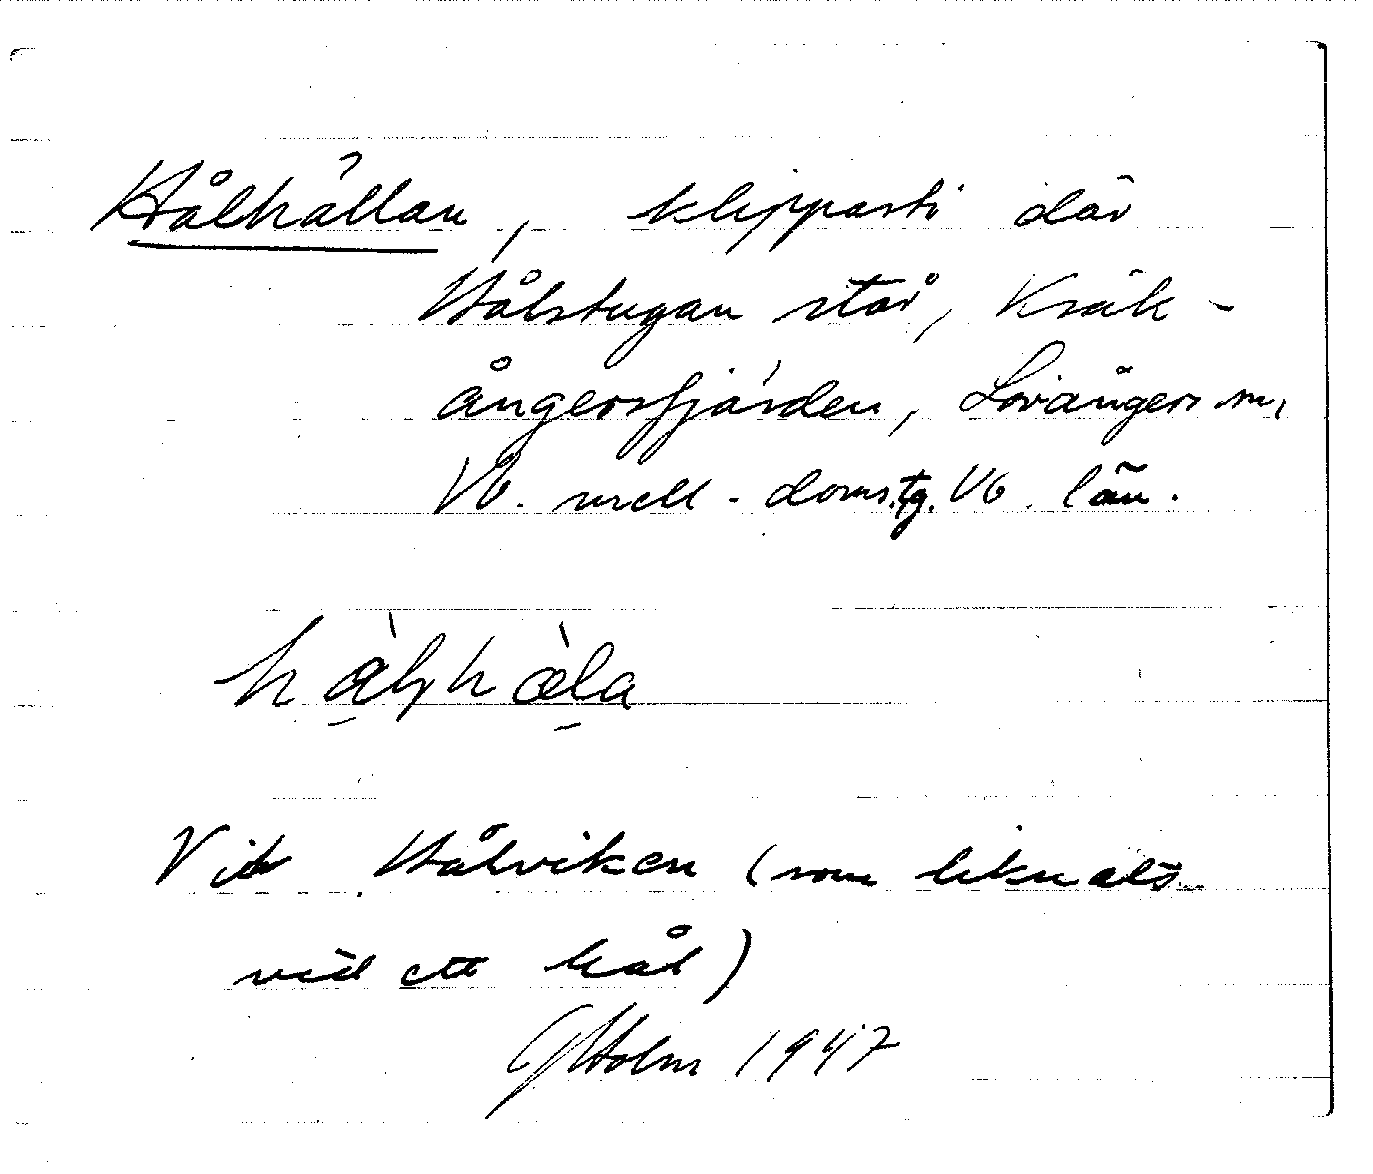 Hålhällan, klipparti där
Hålstugan står, Kräk-
ångersfjärden, Lövångers sn,
Vb. mell. doms.tg. Vb. län.
hålhæla
Vid Hålviken (som liknats
vid ett hål)
GHolm 1947